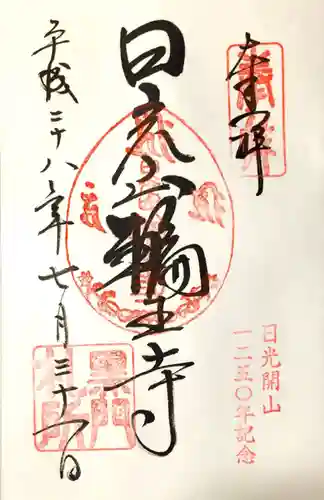 奉拝
日光山輪王寺
平成二十八年七月三十一日
日光開山
一二五〇年記念
黒門